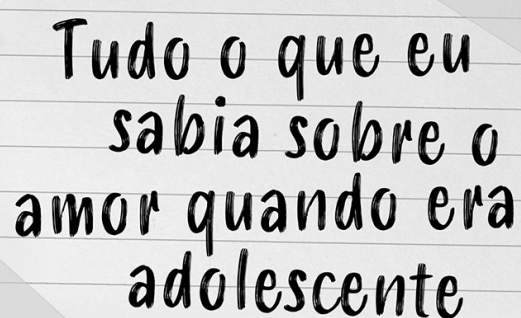 Tudo o que eu
sabia sobre o
amor quando era
adolescente